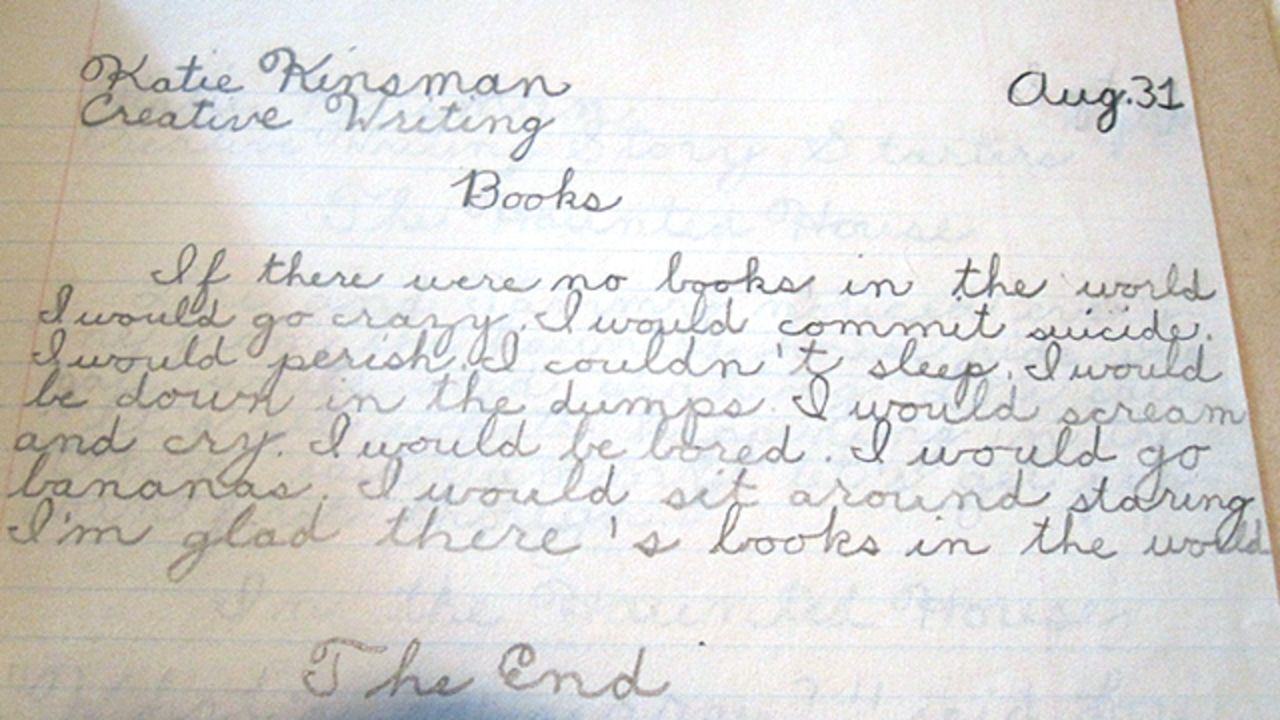 Katie Kinsman Aug. 31
Creative Writing
Books
If there were no books in the world
I would go crazy. I would commit suicide.
I would perish. I couldn't sleep. I would
be down in the dumps. I would scream
and cry. I would be bored. I would go
bananas. I would sit around staring
I'm glad there's books in the world
The End